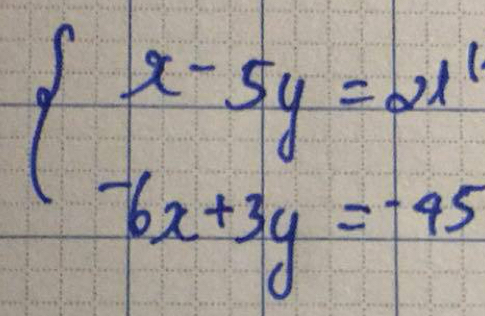 x - 5y = 21
-6x + 3y = -45